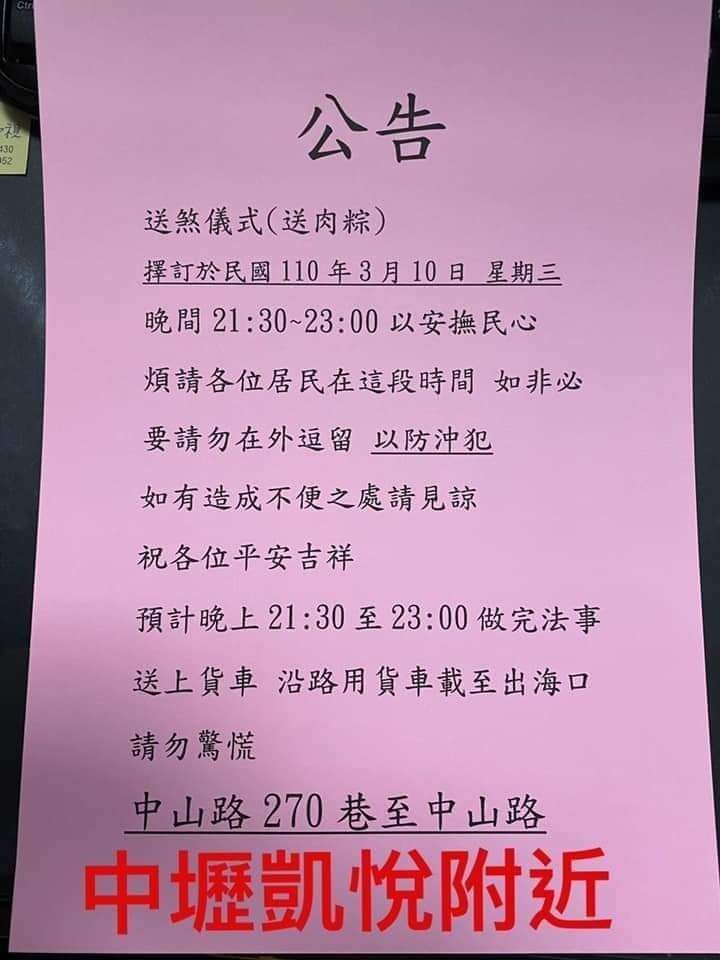 Ctrl
視
430
952
公告
送煞儀式(送肉粽)
擇訂於民國 110 年 3 月 10 日 星期三
晚間 21:30~23:00 以安撫民心
煩請各位居民在這段時間 如非必
要請勿在外逗留 以防沖犯
如有造成不便之處請見諒
祝各位平安吉祥
預計晚上 21:30 至 23:00 做完法事
送上貨車 沿路用貨車載至出海口
請勿驚慌
中山路 270 巷至中山路
中壢凱悅附近